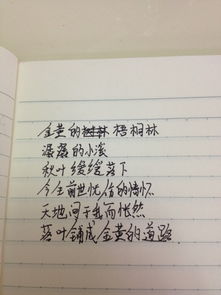 金黄的树林梧桐林
潺潺的小溪
秋叶缓缓落下
今生前世忧伤的情怀
天地间于我而怅然
落叶铺成金黄的道路